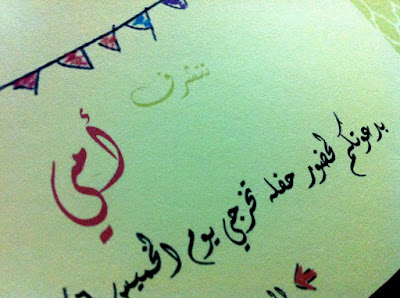 تتشرف
أمي
بدعوتكم لحضور حفله تخرجي يوم الخميس